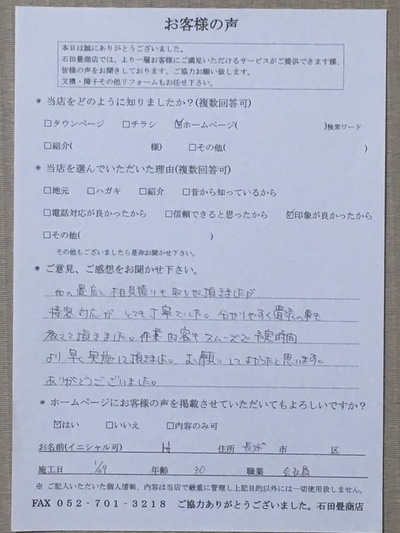 お客様の声
本日は誠にありがとうございました。
石田畳商店では、より一層お客様にご満足いただけるサービスがご提供できます様、
皆様の声をお聞きしております。ご協力お願い致します。
又襖・障子その他リフォームもお任せ下さい。
* 当店をどのように知りましたか?(複数回答可)
□タウンページ □チラシ ☑ホームページ( )検索ワード
□紹介( 様) □その他( )
* 当店を選んでいただいた理由(複数回答可)
□地元 □ハガキ □紹介 □昔から知っているから
□電話対応が良かったから □信頼できると思ったから ☑印象が良かったから
□その他( )
その他もございましたら是非お聞かせ下さい。
* ご意見、ご感想をお聞かせ下さい。
他の畳店と相見積りも取らせて頂きましたが
接客対応がとても丁寧でした。分かりやすく畳表の事も
教えて頂きました。作業内容もスムーズで予定時間
より早く実施して頂きました。お願いしてよかったと思います。
ありがとうございました。
* ホームページにお客様の声を掲載させていただいてもよろしいですか?
☑はい □いいえ □内容のみ可
お名前(イニシャル可) H 住所 長久手 市 区
施工日 1/29 年齢 30 職業 会社員
※ ご記入いただいた個人情報、内容は当店で厳重に管理し上記目的以外には一切使用致しません。
FAX 052-701-3218 ご協力ありがとうございました。石田畳商店